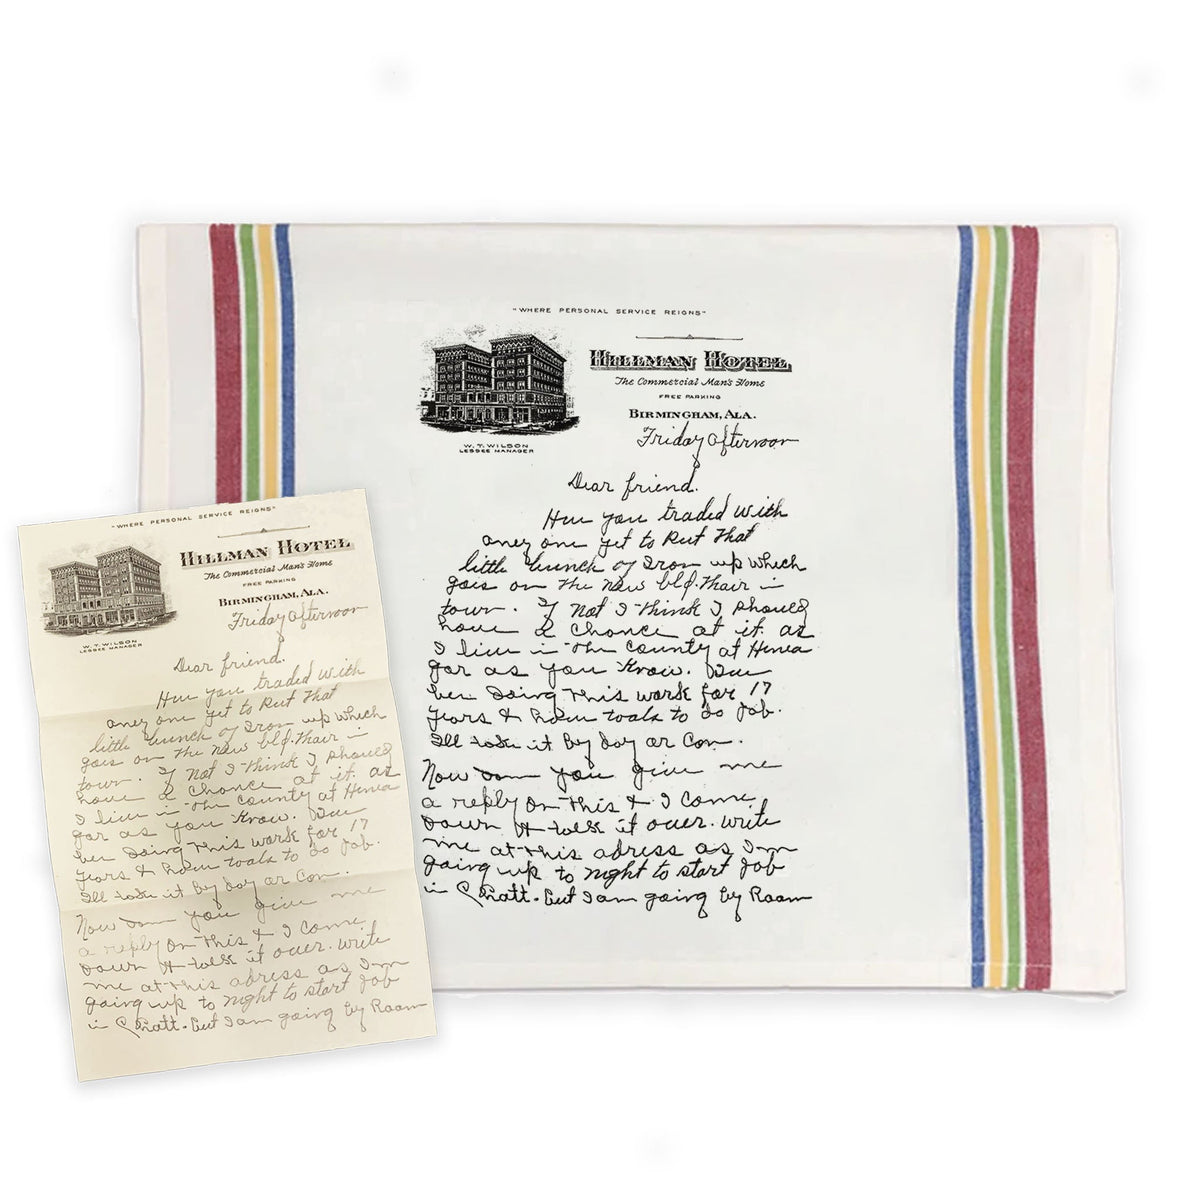 "WHERE PERSONAL SERVICE REIGNS"
HILLMAN HOTEL
The Commercial Man's Home
FREE PARKING
BIRMINGHAM, ALA.
W. T. WILSON
LESSEE MANAGER
Friday afternoon
Dear friend.
Have you traded with
aney one yet to Put That
little bunch of Iron up which
goes on the new bld. Thair in
town. If Not I think I should
have a chance at it. as
I live in the County at
far as you Know.
ben doing This work for 17
years & have toals to do Job.
Ill take it by day or Con.
Now you give me
a reply on this & I come
down & talk it over. write
me at this adress as I'm
going up to night to start Job
in Pratt. but I am going by Roam
"WHERE PERSONAL SERVICE REIGNS"
HILLMAN HOTEL
The Commercial Man's Home
FREE PARKING
BIRMINGHAM, ALA.
W. T. WILSON
LESSEE MANAGER
Friday afternoon
Dear friend.
Have you traded with
aney one yet to Put That
little bunch of Iron up which
goes on the new bld. Thair in
town. If Not I think I should
have a chance at it. as
I live in the County at
far as you Know.
ben doing This work for 17
years & have toals to do Job.
Ill take it by day or Con.
Now you give me
a reply on this & I come
down & talk it over. write
me at this adress as I'm
going up to night to start Job
in Pratt. but I am going by Roam